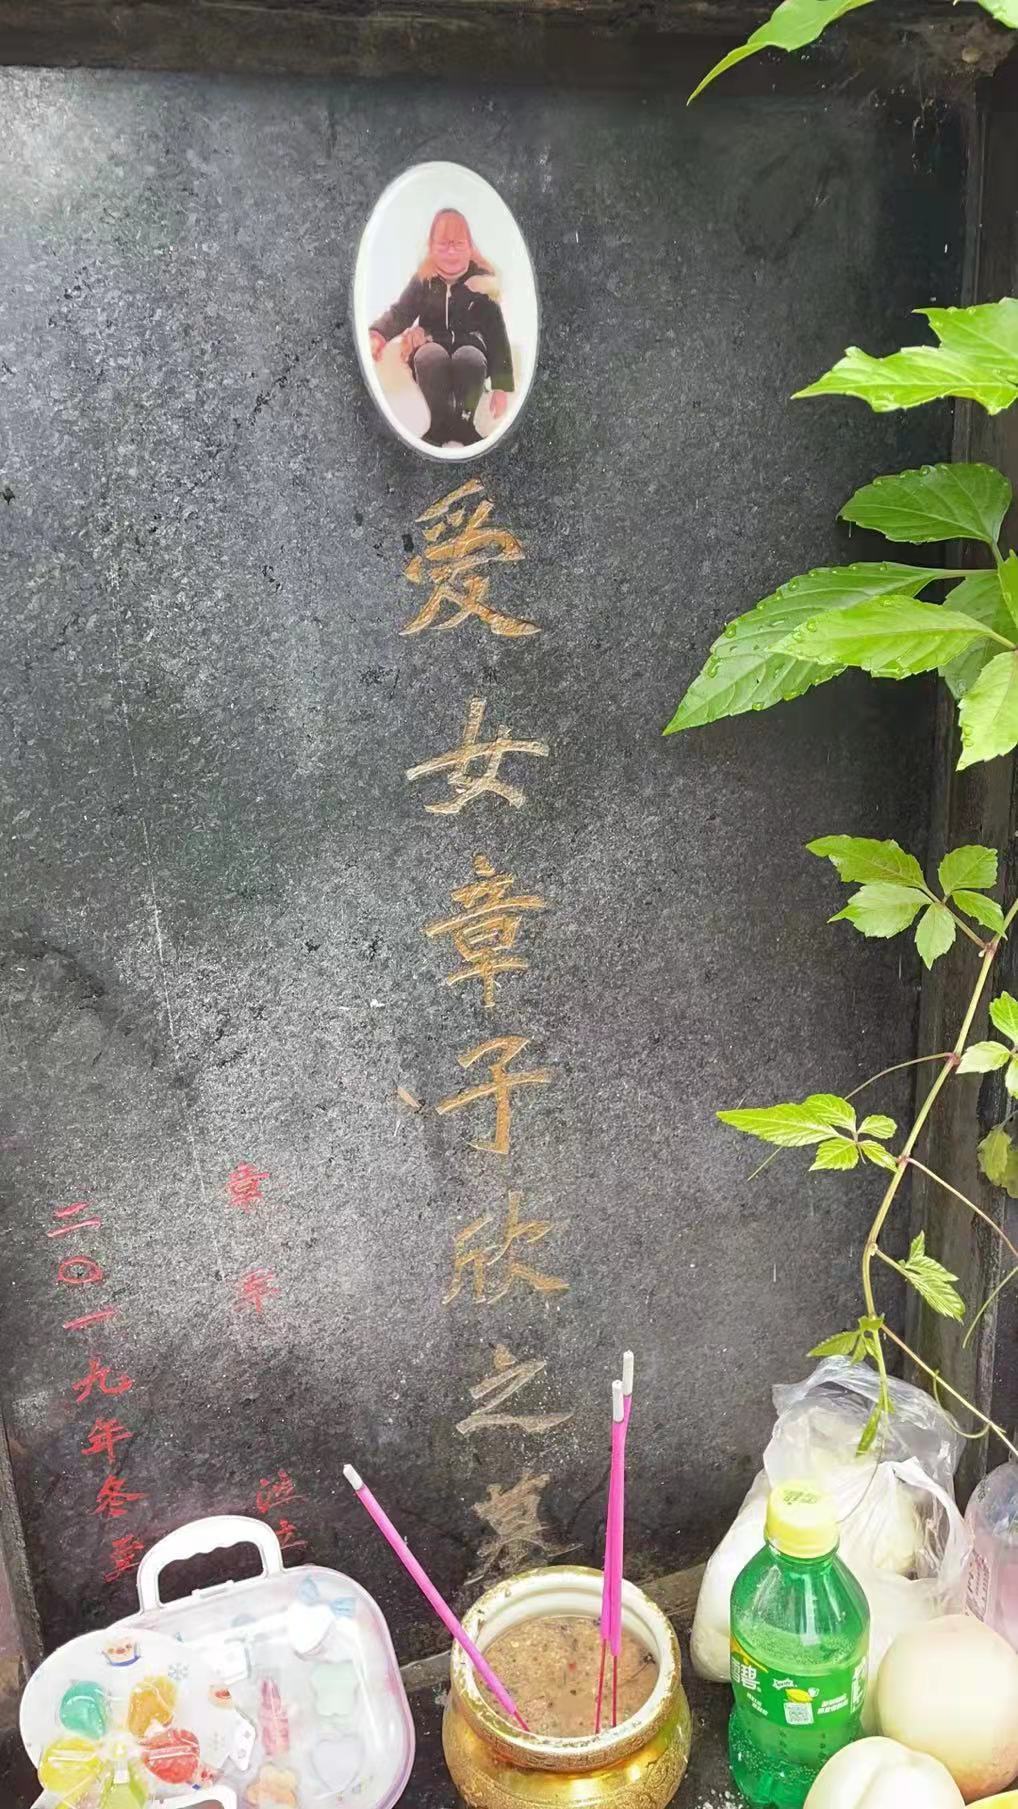 爱女章子欣之墓
章军
泣立
二〇一九年冬至
雪碧